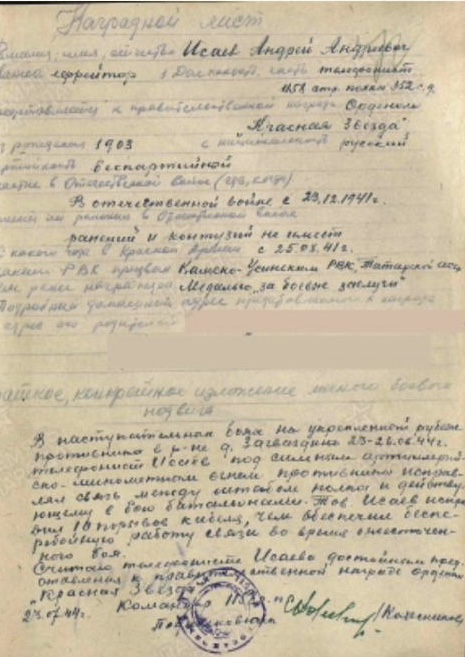 Наградной лист
Фамилия, имя, отчество Исаев Андрей Андреевич
звание ефрейтор Должность, часть телефонист
1158 стр. полка 352 с.д.
представляется к правительственной награде Орденом
"Красная Звезда"
рождения 1903 национальность русский
партийность беспартийной
участие в Отечественной войне
В отечественной войне с 23.12.1941г.
имеет ли ранения в Отечественной войне
ранений и контузий не имеет
С какого года в Красной Армии с 25.08.41г.
каким РВК призван Камско-Устинским РВК, Татарской АССР
чем ранее награжден Медалью "за боевые заслуги"
Подробный домашний адрес представляемого к награде
адрес его родителей
краткое, конкретное изложение личного боевого
подвига
В наступательных боях на укрепленном рубеже
противника в р-не д. Загваздино 23-26.06.44г.
телефонист Исаев под сильным артиллерий-
ско-минометным огнем противника исправ-
лял связь между штабом полка и действу-
ющему в бою батальонами. Тов. Исаев испра-
вил 18 порывов кабеля, чем обеспечил беспе-
ребойную работу связи во время ожесточен-
ного боя.
Считаю телефониста Исаева достойным пред-
ставления к правительственной награде орденом
"Красная Звезда"
Командир 1158
23.07.44г.